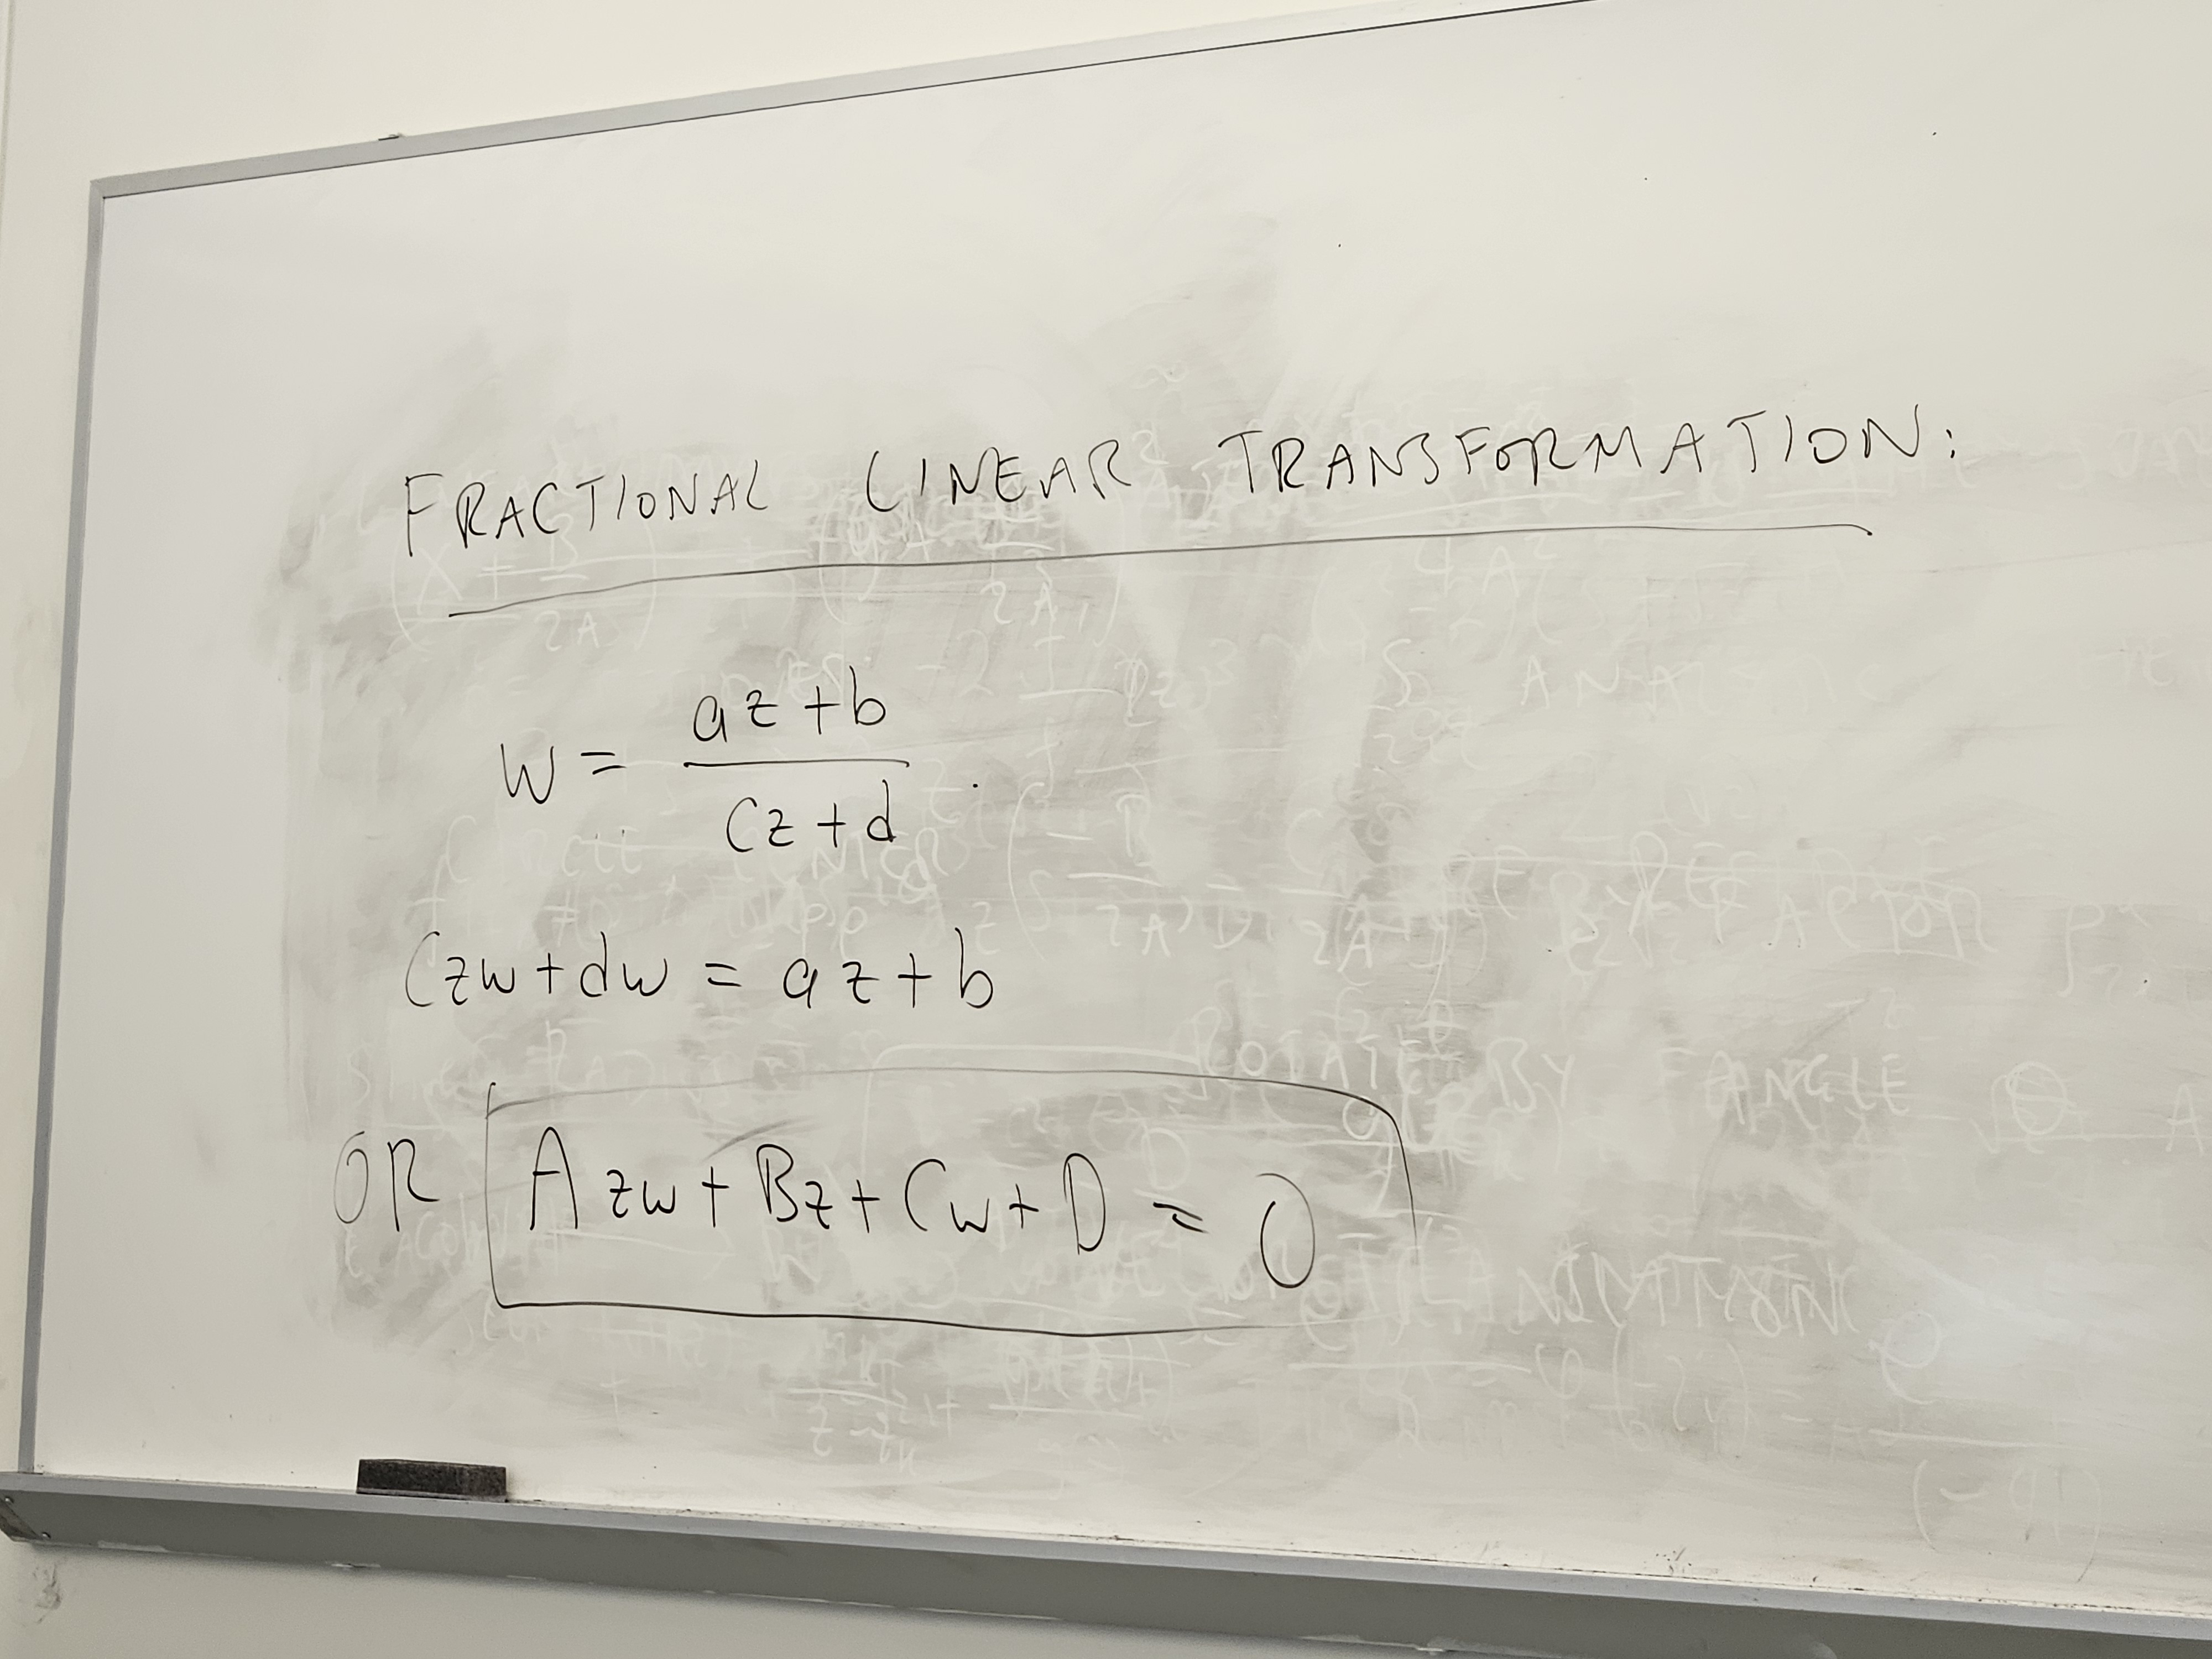 FRACTIONAL LINEAR TRANSFORMATION:
w = (az+b)/(cz+d).
Czw+dw = az+b
OR Azw + Bz + Cw + D = 0